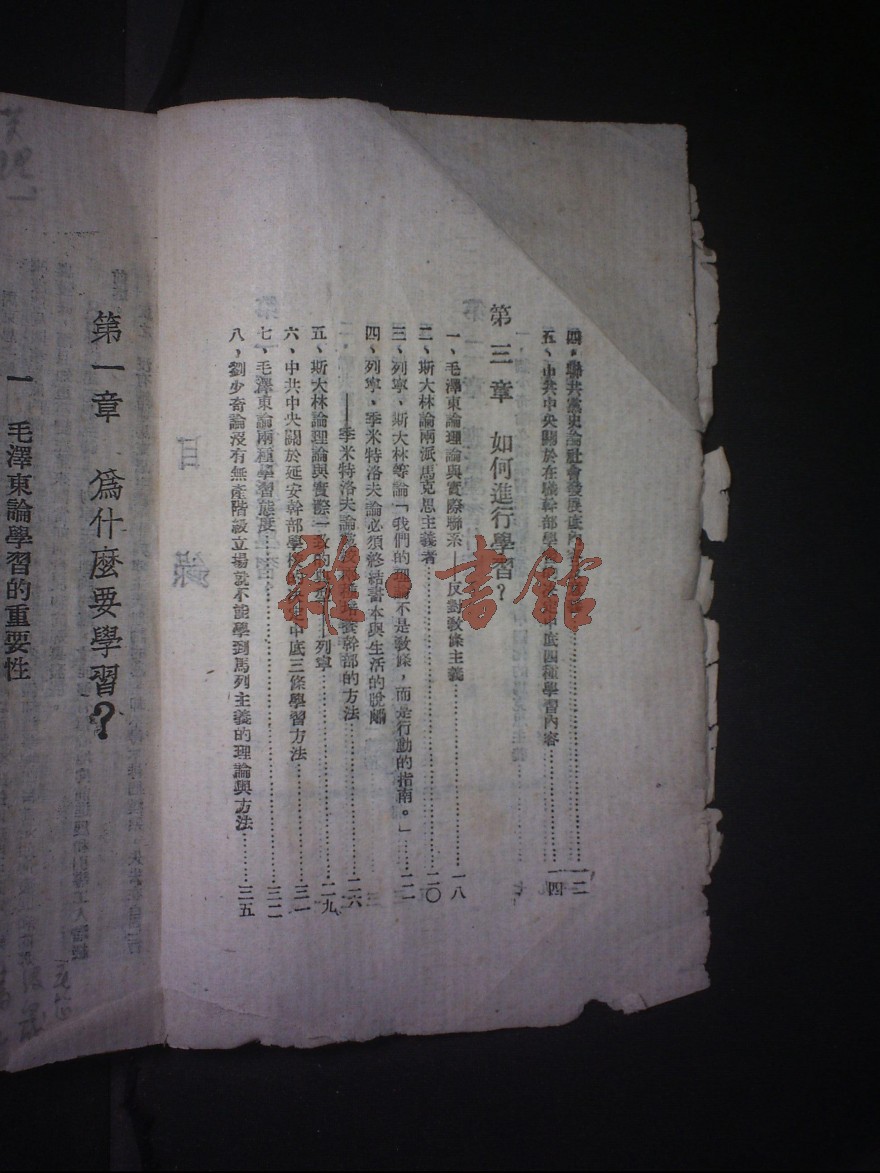 四、聯共黨史論社會發展底內……一二
五、中共中央關於在職幹部學……中底四種學習內容……一四
第三章　如何進行學習？
一、毛澤東論理論與實際聯系——反對敎條主義……一八
二、斯大林論兩派馬克思主義者……二〇
三、列寧、斯大林等論「我們的理論不是敎條，而是行動的指南。」……二二
四、列寧、季米特洛夫論必須終結書本與生活的脫離
——季米特洛夫論……培養幹部的方法……二六
五、斯大林論理論與實際一致的……列寧……二九
六、中共中央關於延安幹部學校的決定中底三條學習方法……三一
七、毛澤東論兩種學習態度……三二
八、劉少奇論沒有無產階級立場就不能學到馬列主義的理論與方法……三五
雜·書館
第一章　爲什麼要學習？
一　毛澤東論學習的重要性